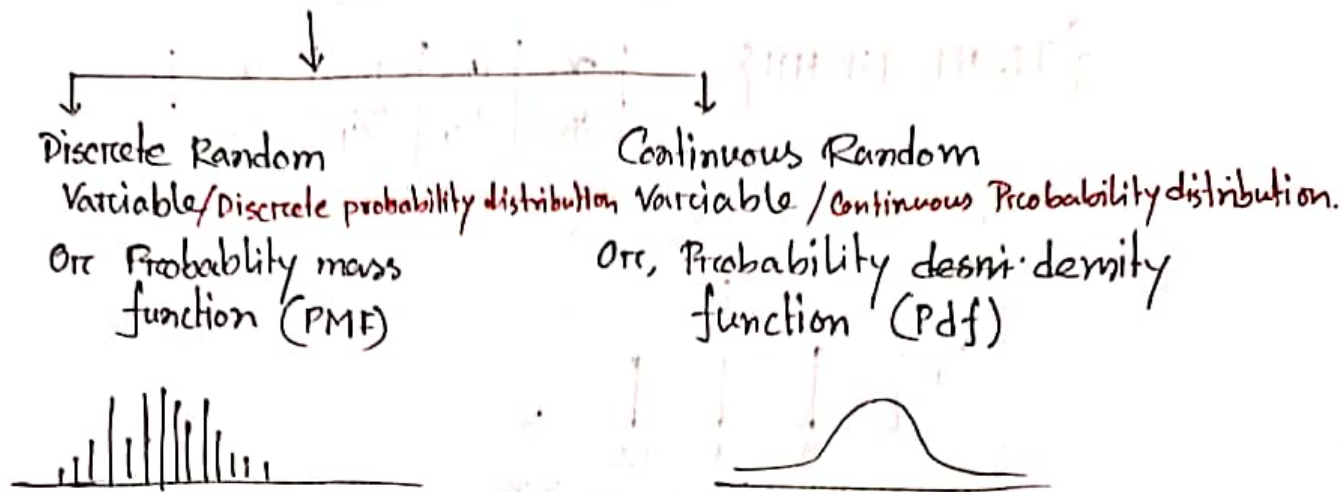 Discrete Random
Variable/Discrete probability distribution
Or Probablity mass
function (PMF)
Continuous Random
Variable / Continuous Probability distribution.
Or, Probability desni. density
function (Pdf)